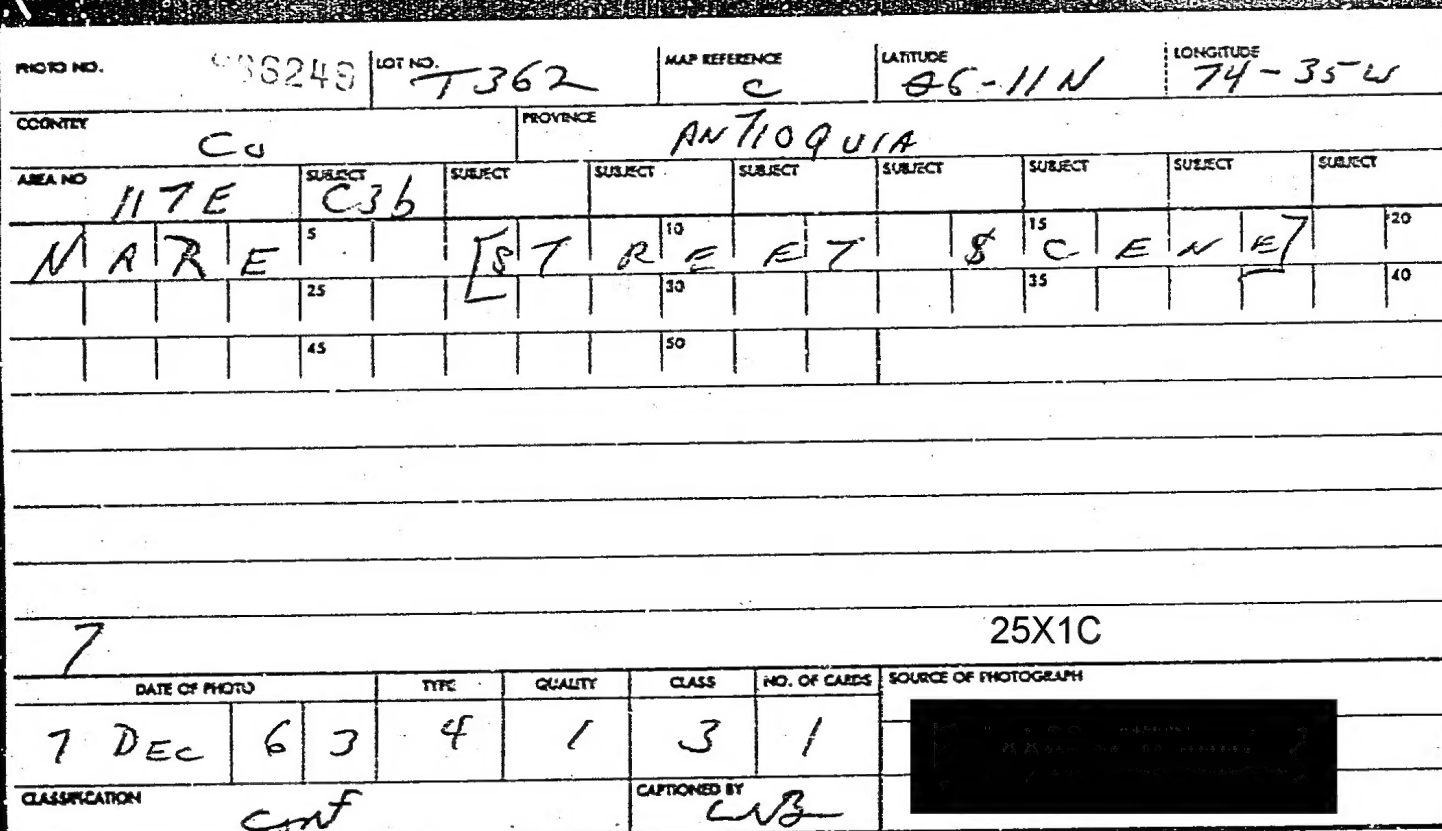 PHOTO NO. LOT NO. T362 MAP REFERENCE C LATITUDE 06-11N LONGITUDE 74-35W
COUNTRY Co PROVINCE ANTIOQUIA
AREA NO 117E SUBJECT C3b SUBJECT SUBJECT SUBJECT SUBJECT SUBJECT SUBJECT SUBJECT
NARE 5 [STREET 10 SCENE] 15 20
25 30 35 40
45 50
25X1C
7
DATE OF PHOTO TYPE QUALITY CLASS NO. OF CARDS SOURCE OF PHOTOGRAPH
7 DEC 6 3 4 1 3 1
CLASSIFICATION conf CAPTIONED BY